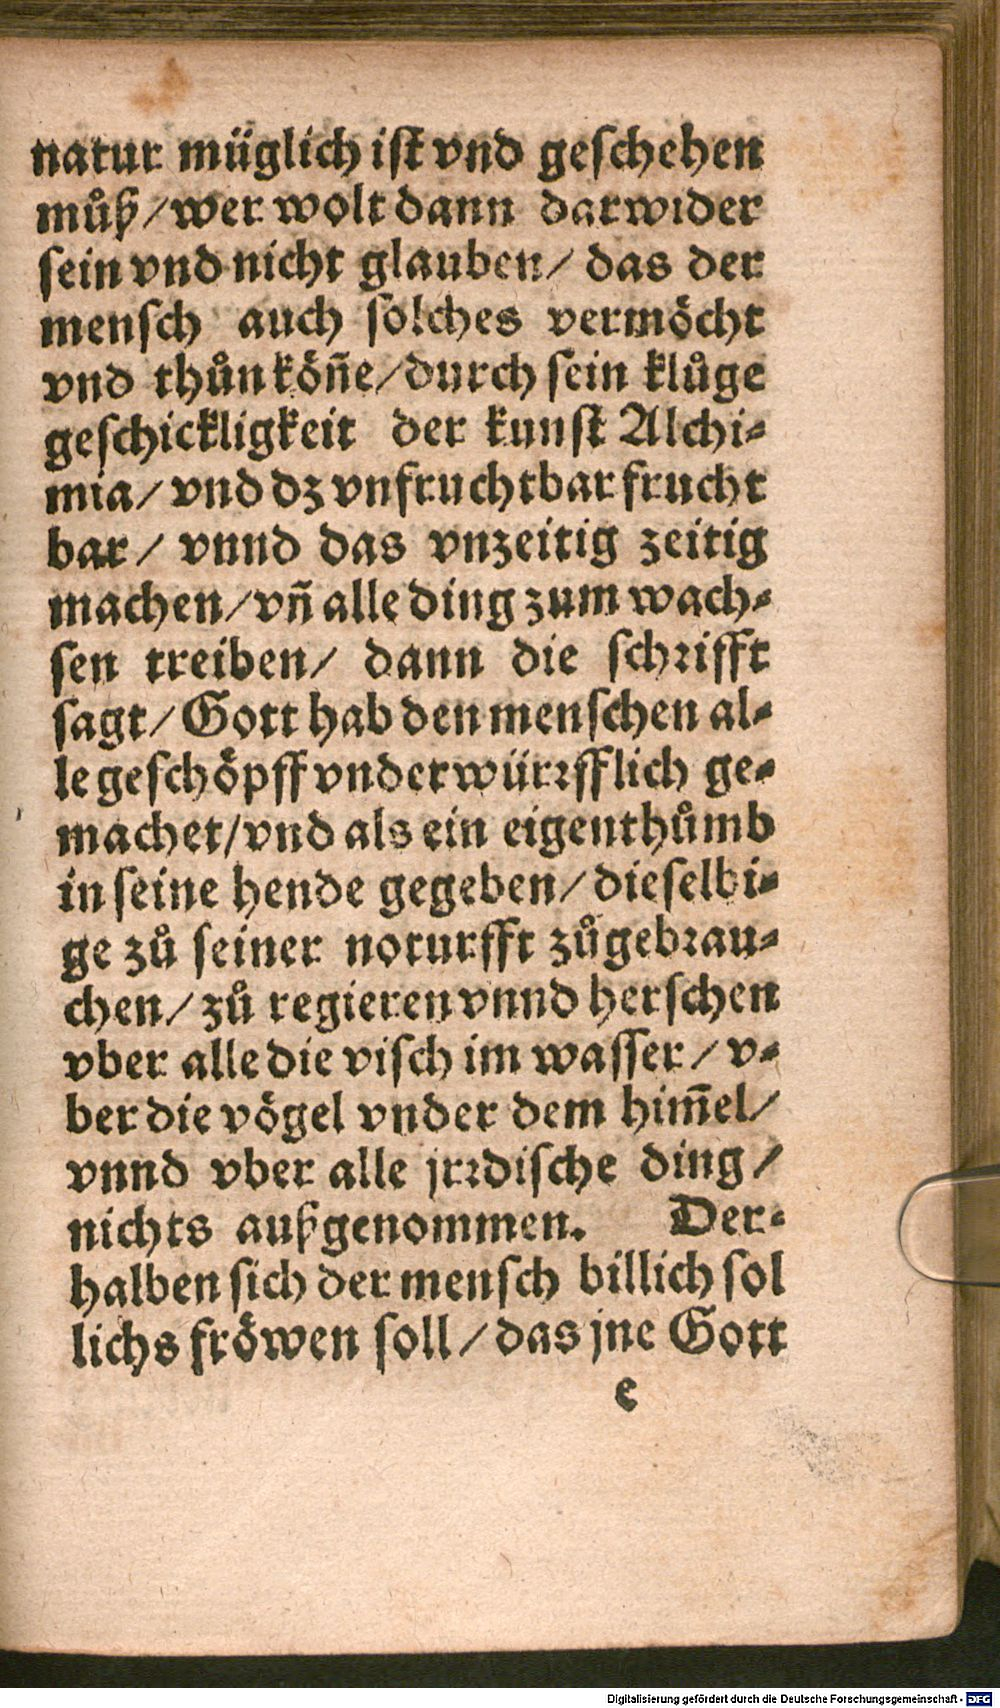 natur müglich ist vnd geschehen
můß/wer wolt dann darwider
sein vnd nicht glauben/ das der
mensch auch solches vermöcht
vnd thůn köñe/durch sein klůge
geschickligkeit der kunst Alchi⸗
mia/ vnd dz vnfruchtbar frucht
bar/ vnnd das vnzeitig zeitig
machen/vñ alle ding zum wach⸗
sen treiben/ dann die schrifft
sagt/ Gott hab den menschen al⸗
le geschöpff vnderwürrfflich ge⸗
machet/vnd als ein eigenthůmb
in seine hende gegeben/ dieselbi⸗
ge zů seiner noturfft zůgebrau⸗
chen/ zů regieren vnnd herschen
vber alle die visch im wasser/ v⸗
ber die vögel vnder dem him̄el/
vnnd vber alle jrrdische ding/
nichts außgenommen. Der⸗
halben sich der mensch billich sol
lichs fröwen soll/ das jne Gott
e
Digitalisierung gefördert durch die Deutsche Forschungsgemeinschaft - DFG